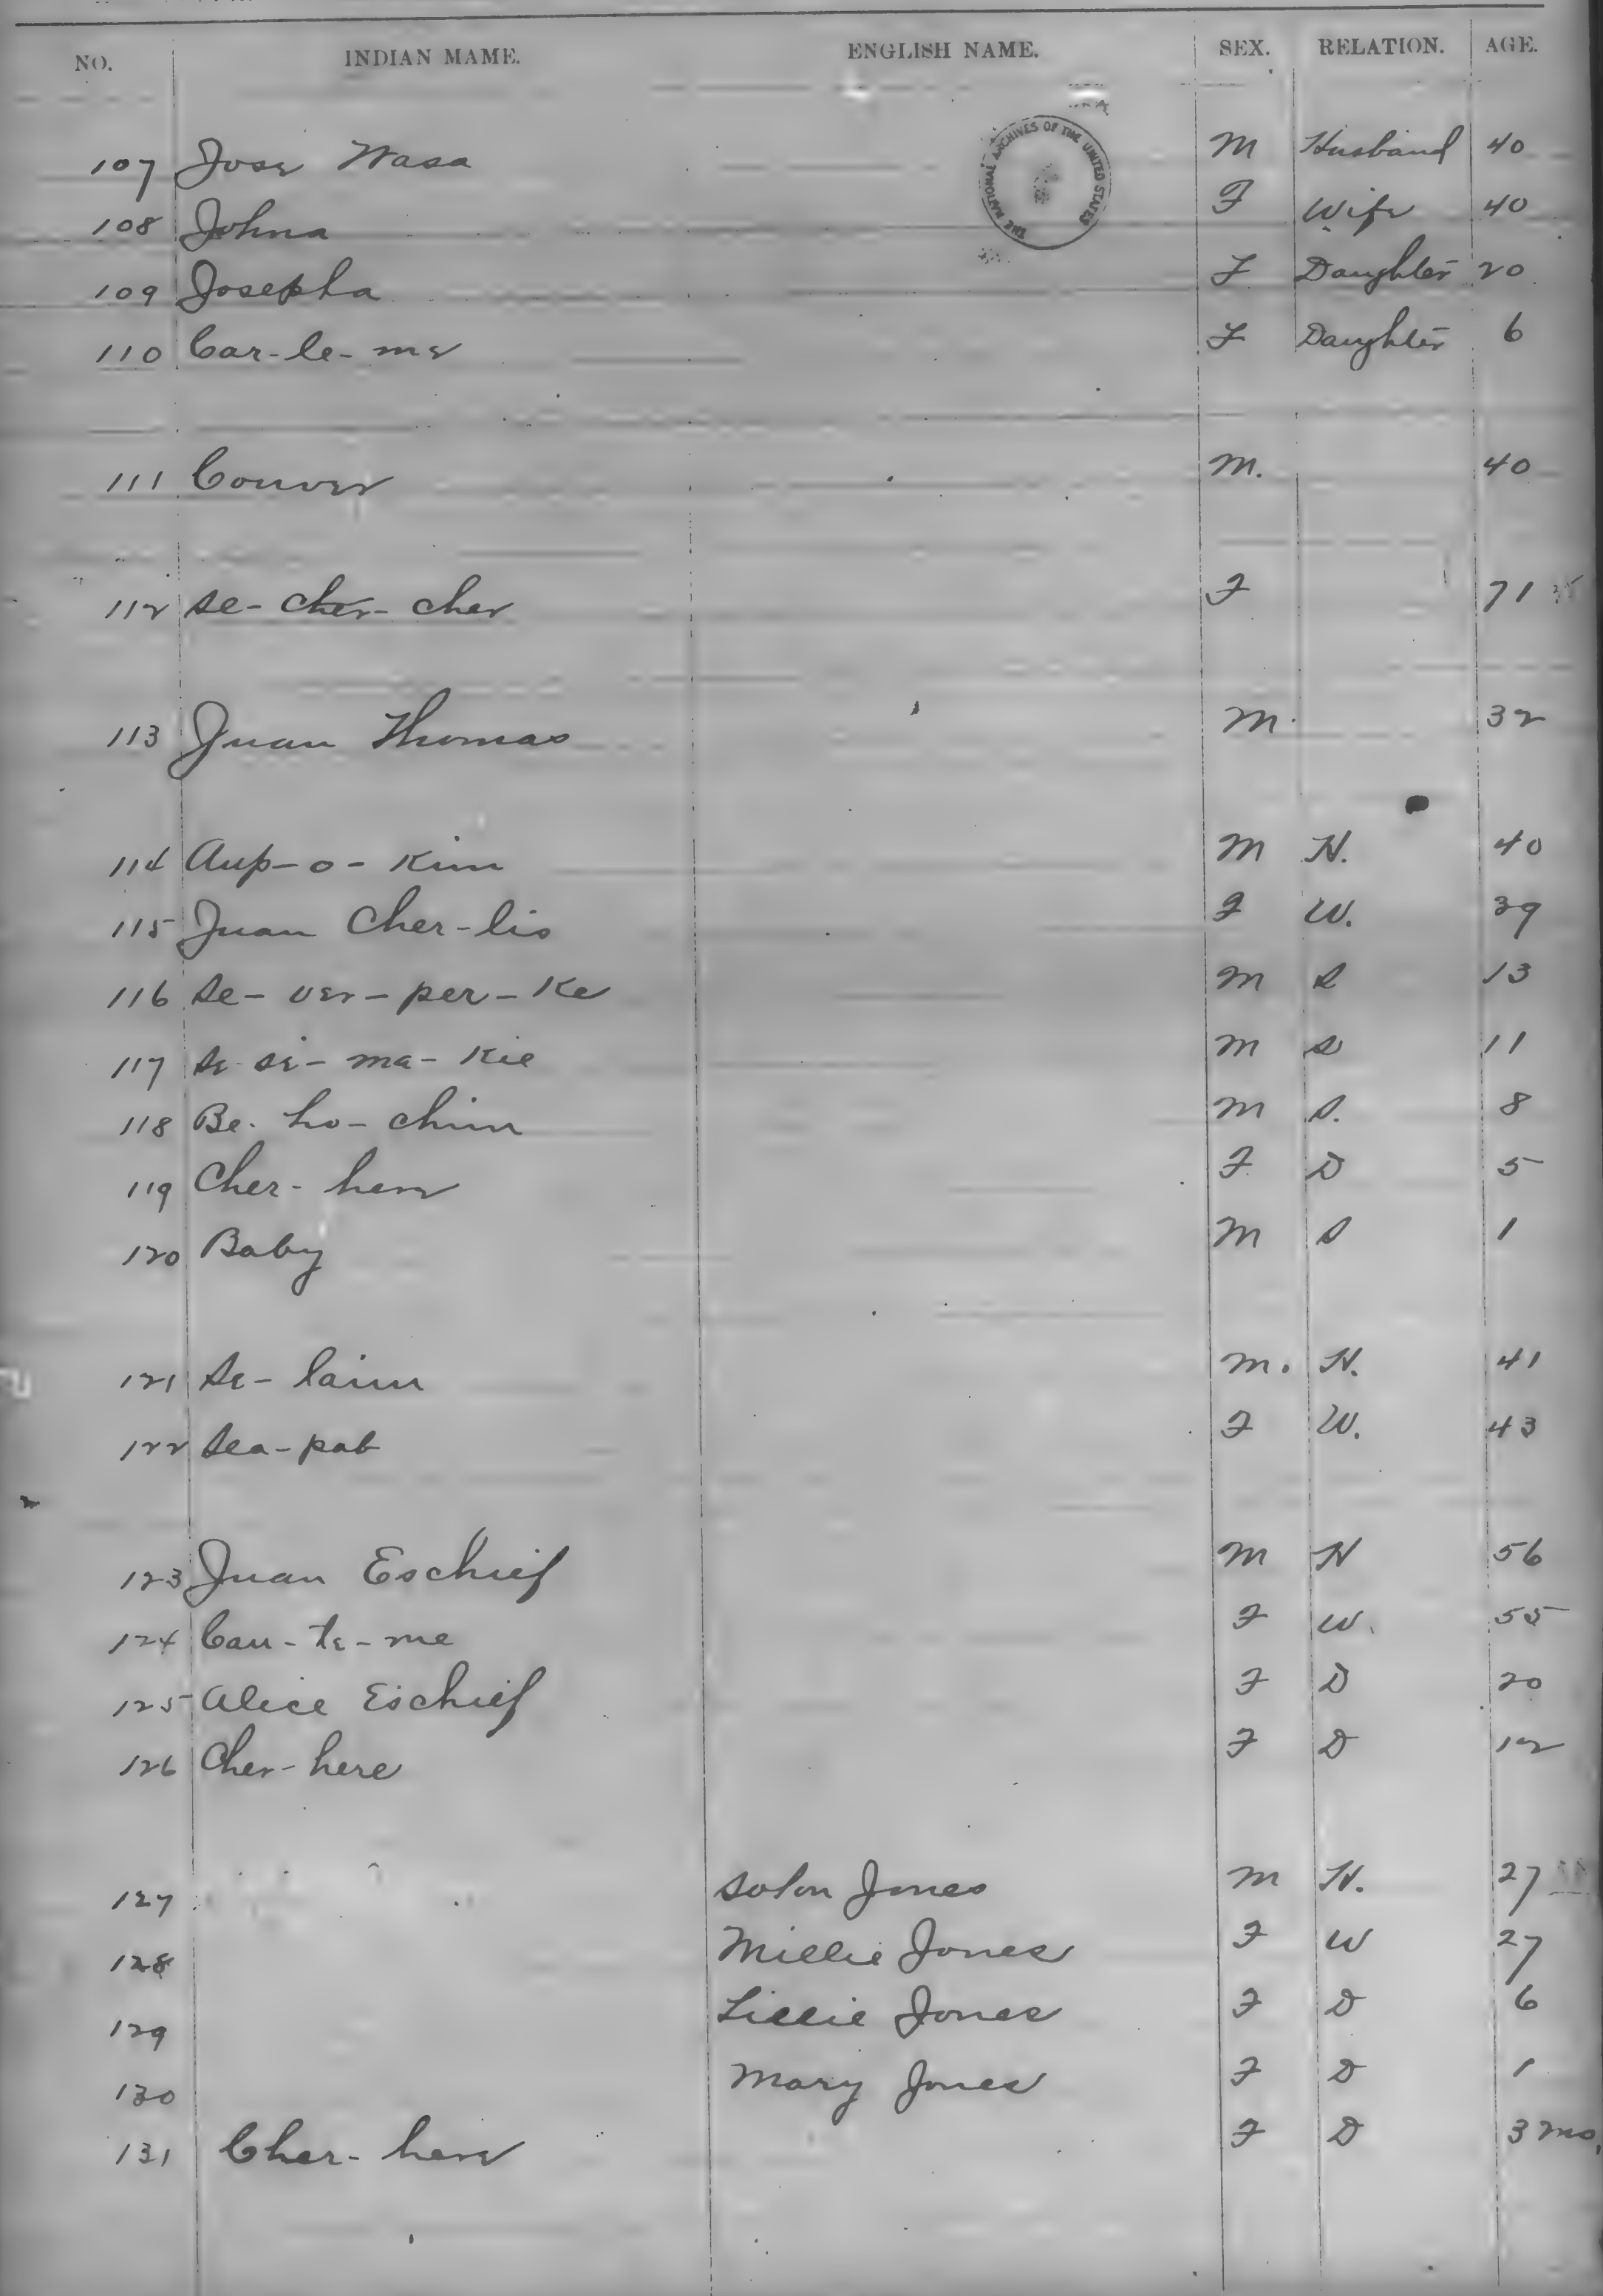 NO. INDIAN MAME. ENGLISH NAME. SEX. RELATION. AGE.
THE NATIONAL ARCHIVES OF THE UNITED STATES
107 Jose Wasa M Husband 40
108 Johna F Wife 40
109 Josepha F Daughter 20
110 Car-le-me F Daughter 6
111 Couver M. 40
112 Se-cher-cher F 71
113 Juan Thomas M. 32
114 Aup-o-Kim M H. 40
115 Juan Cher-lis F W. 39
116 Se-ver-per-Ke M S 13
117 Se-se-ma-Kie M S 11
118 Be-ho-chim M S. 8
119 Cher-here F D 5
120 Baby M S 1
121 Se-laim M. H. 41
122 Sea-pat F W. 43
123 Juan Eschief M H 56
124 Cau-te-me F W. 55
125 Alice Eschief F D 20
126 Cher-here F D 12
127 Solon Jones M H. 27
128 Millie Jones F W 27
129 Lillie Jones F D 6
130 Mary Jones F D 1
131 Cher-here F D 3 mo.